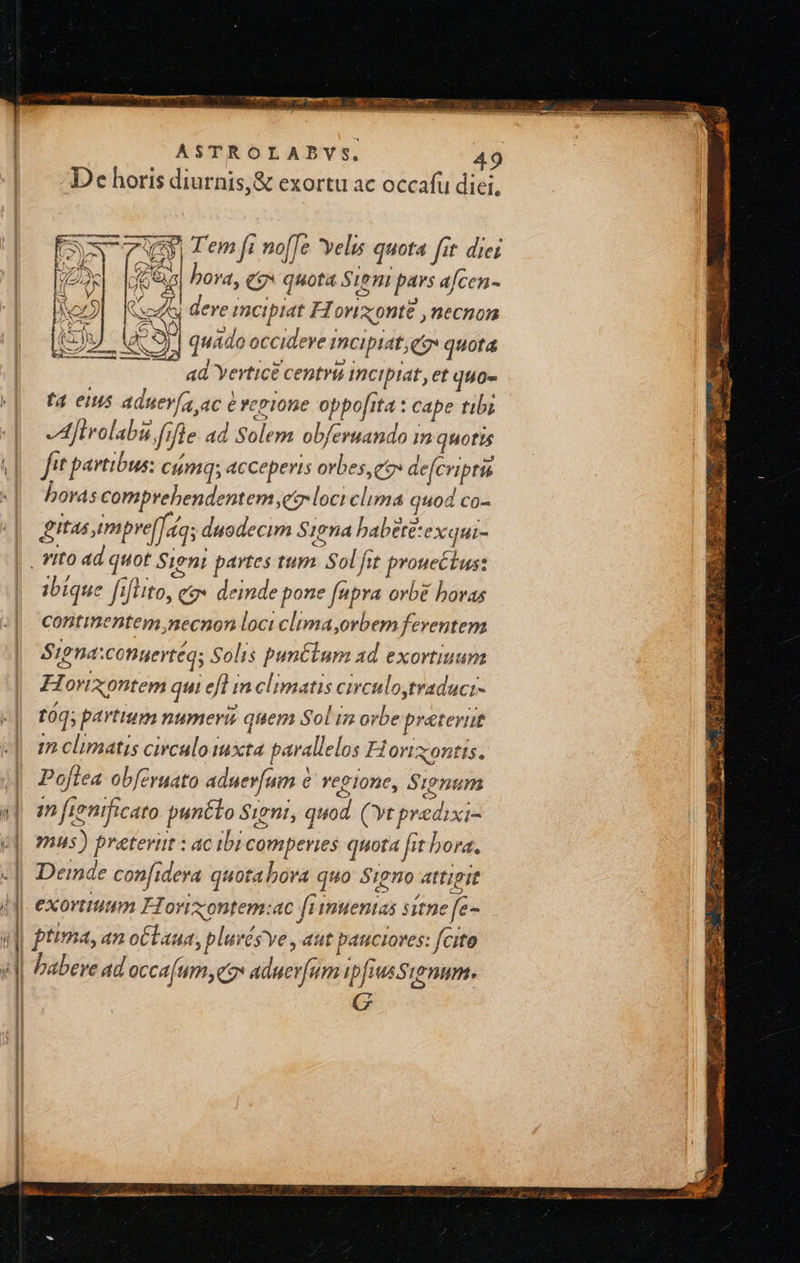 ASTROLABVS. 49
De horis diurnis, & exortu ac occaſu diei.
Tem ſi noſſe velis quota ſit diei
hora, & quota Signi pars aſcen-
dere incipiat Horizontẽ, necnon
quãdo occidere incipiat, & quota
ad verticẽ centrũ incipiat, et quo-
ta eius aduerſa, ac è regione oppoſita: cape tibi
Aſtrolabiũ, ſiſte ad Solem obſeruando in quotis
ſit partibus: cúmq; acceperis orbes, & deſcriptũ
horas comprehendentem, & loci clima quod co-
gitas, impreſſáq; duodecim Signa habẽtẽ: exqui-
rito ad quot Signi partes tum Sol ſit prouectus:
ibíque ſiſtito, & deinde pone ſupra orbẽ horas
continentem, necnon loci clima, orbem ferentem
Signa: conuertẽq; Solis punctum ad exortiuum
Horizontem qui eſt in climatis circulo, traduci-
tóq; partium numerũ quem Sol in orbe præteriit
in climatis circulo iuxta parallelos Horizontis.
Poſtea obſeruato aduerſum è regione, Signum
in ſignificato puncto Signi, quod (vt prædixi-
mus) præteriit: ac ibi comperies quota ſit hora.
Deinde conſidera quota hora quo Signo attigit
exortiuum Horizontem: ac ſi inuenias sítne ſe-
ptima, an octaua, plurésve, aut pauciores: ſcito
habere ad occaſum, & aduerſum ipſius Signum.
G